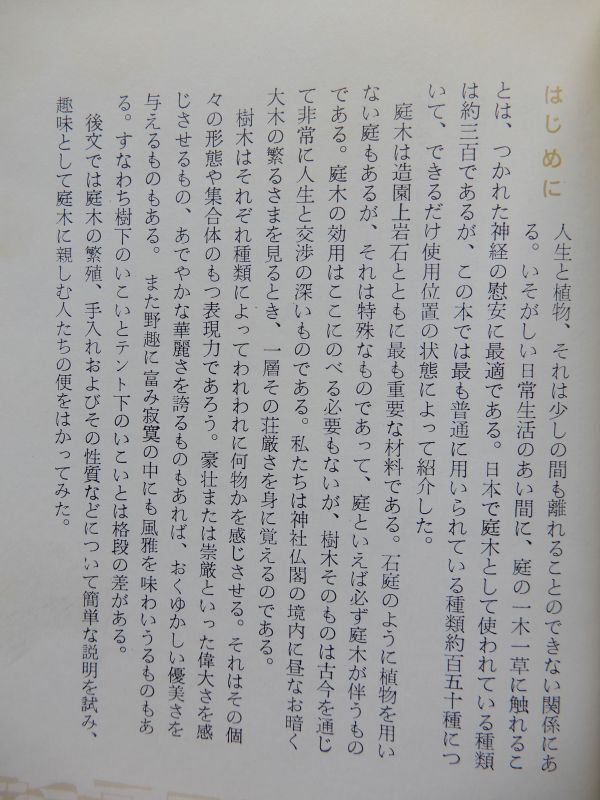 はじめに
人生と植物、それは少しの間も離れることのできない関係にあ
る。いそがしい日常生活のあい間に、庭の一木一草に触れるこ
とは、つかれた神経の慰安に最適である。日本で庭木として使われている種類
は約三百であるが、この本では最も普通に用いられている種類約百五十種につ
いて、できるだけ使用位置の状態によって紹介した。
庭木は造園上岩石とともに最も重要な材料である。石庭のように植物を用い
ない庭もあるが、それは特殊なものであって、庭といえば必ず庭木が伴うもの
である。庭木の効用はここにのべる必要もないが、樹木そのものは古今を通じ
て非常に人生と交渉の深いものである。私たちは神社仏閣の境内に昼なお暗く
大木の繁るさまを見るとき、一層その荘厳さを身に覚えるのである。
樹木はそれぞれ種類によってわれわれに何物かを感じさせる。それはその個
々の形態や集合体のもつ表現力であろう。豪壮または崇厳といった偉大さを感
じさせるもの、あでやかな華麗さを誇るものもあれば、おくゆかしい優美さを
与えるものもある。また野趣に富み寂寞の中にも風雅を味わいうるものもあ
る。すなわち樹下のいこいとテント下のいこいとは格段の差がある。
後文では庭木の繁殖、手入れおよびその性質などについて簡単な説明を試み、
趣味として庭木に親しむ人たちの便をはかってみた。